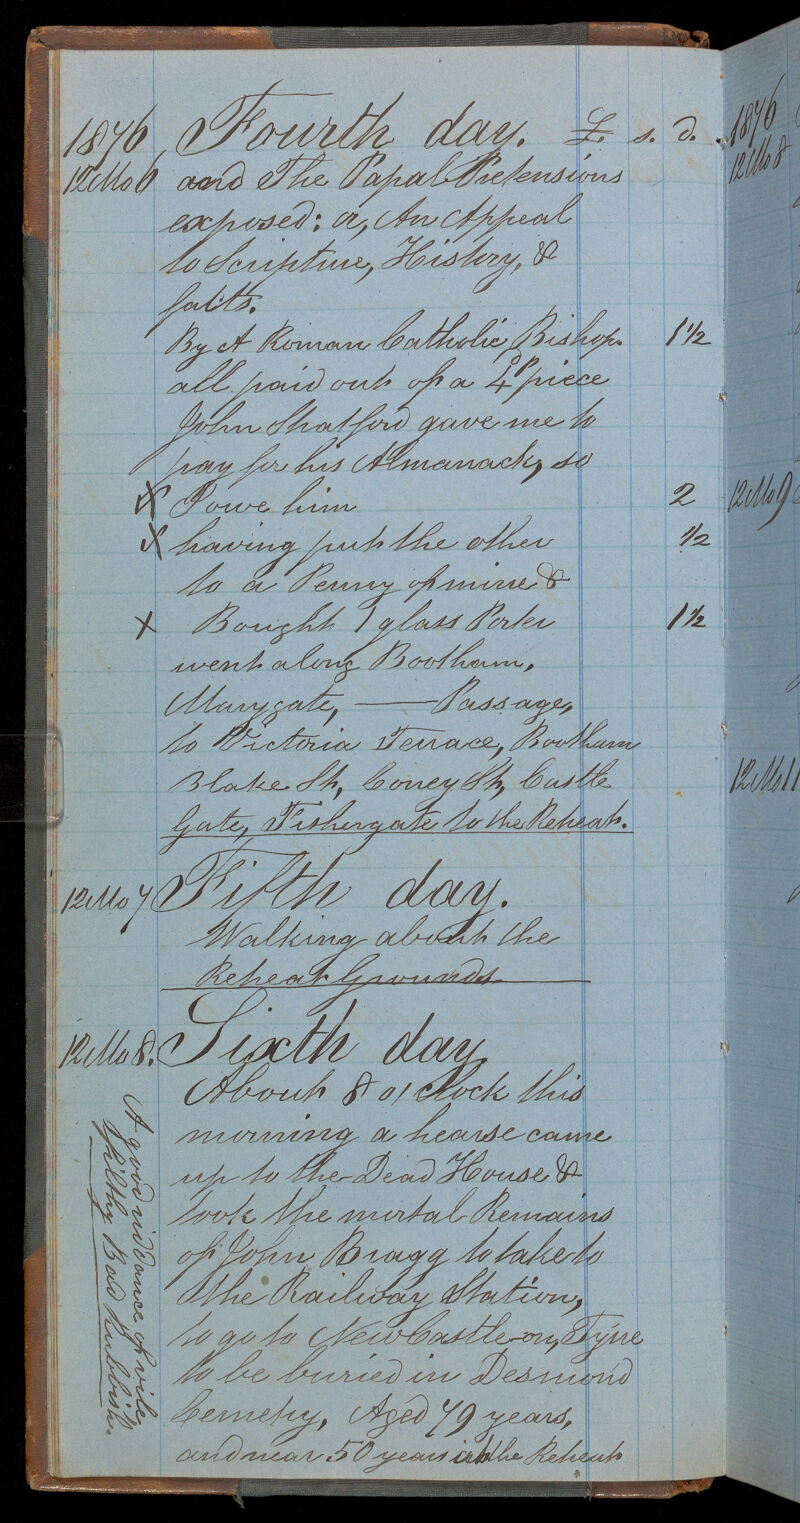 1876 Fourth day. £. s. d.
12 Mo 6 and The Papal Pretensions
exposed: or, An Appeal
to Scripture, History, &
facts.
By A Roman Catholic Bishop. 1 1/2
all paid out of a 4P piece
John Shatford gave me to
pay for his Almanack, so
X I owe him 2
X having put the other 1/2
to a Penny of mine &
X Bought 1 glass Porter 1 1/2
went along Bootham,
Marygate, —— Passage,
to Victoria Terrace, Bootham
Blake St, Coney St, Castle
Gate, Fishergate to the Retreat.
12 Mo 7 Fifth day.
Walking about the
Retreat Grounds.
12 Mo 8. Sixth day
About 8 o'clock this
morning a hearse came
up to the Dead House &
took the mortal Remains
of John Bragg to take to
the Railway Station,
to go to NewCastle-on, Tyne
to be buried in Desmond
Cemetry, Aged 79 years,
and near 50 years in the Retreat
A good riddance of vile,
filthy Bad Rubbish.
1876
12 Mo 8
12 Mo 9
12 Mo 11